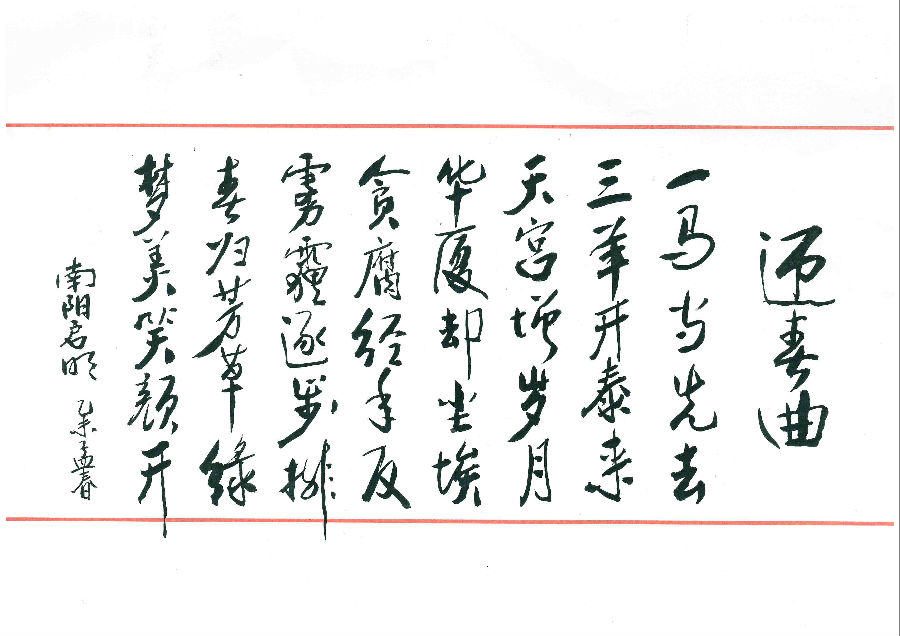 迎春曲
一马当先去
三羊开泰来
天宫增岁月
华厦却尘埃
贪腐经年反
雾霾逐步排
春归芳草绿
梦美笑颜开
南阳君明 乙未孟春